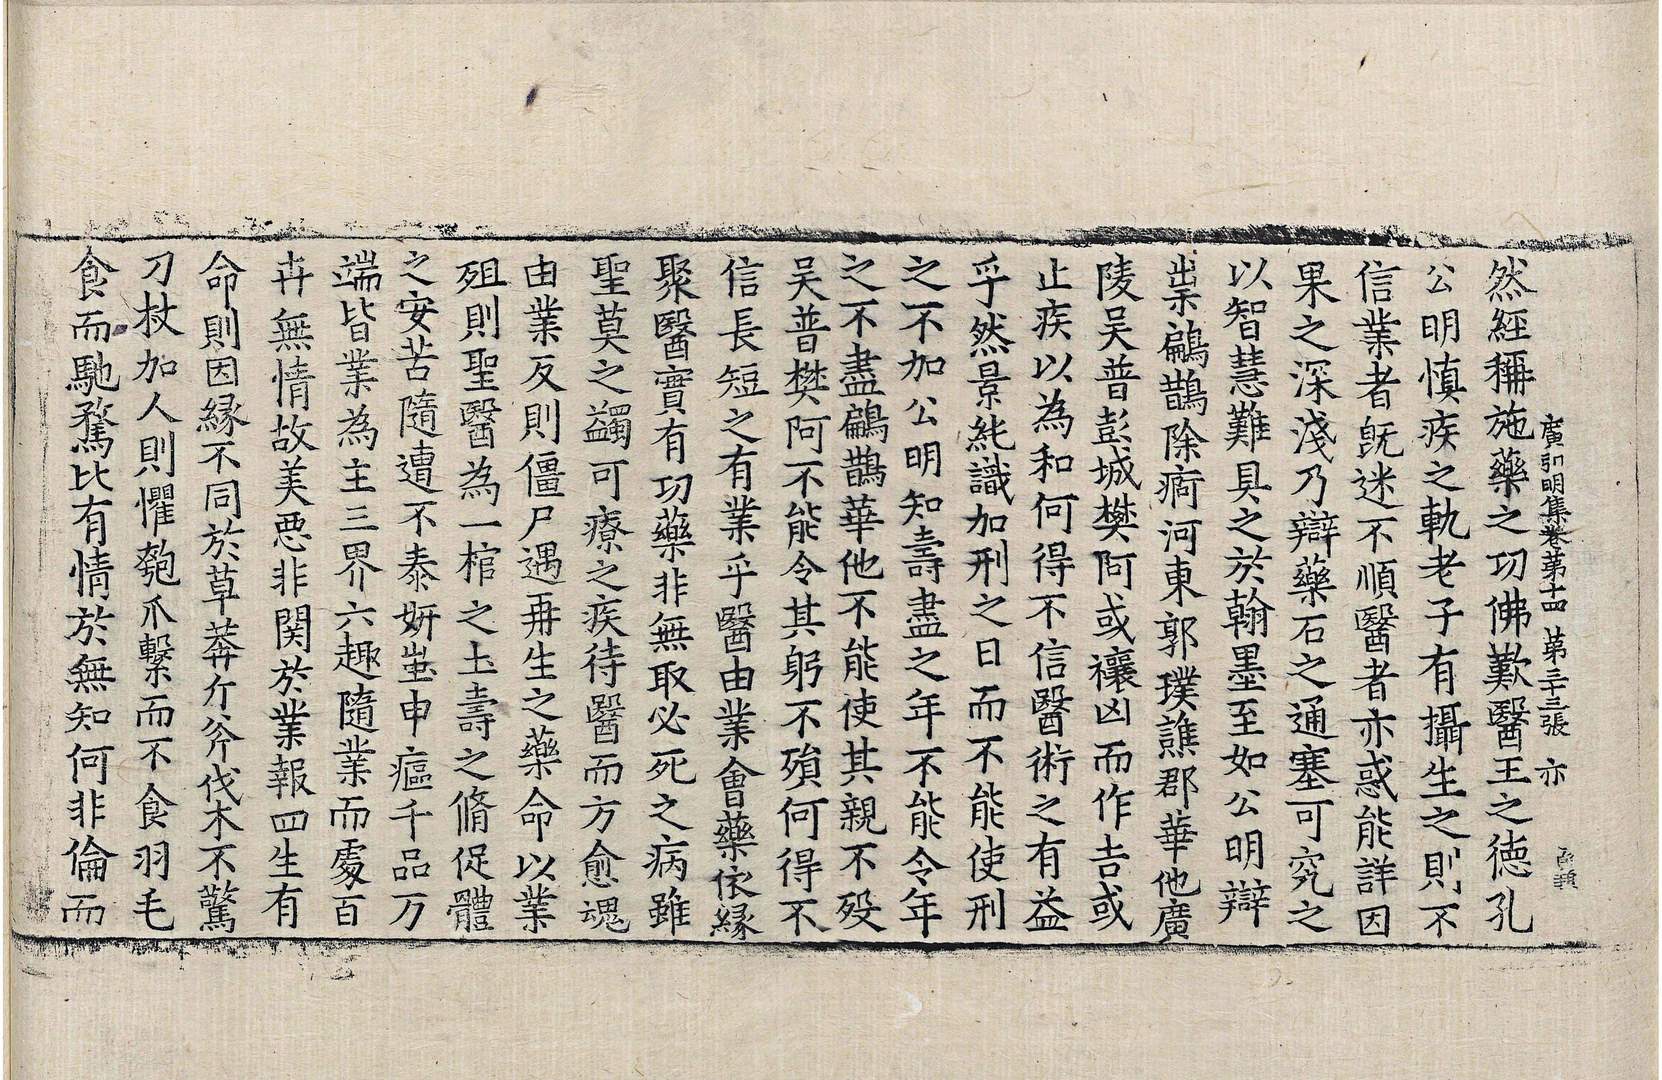 廣弘明集卷第十四　第三十三張　亦
然經稱施藥之功佛歎醫王之德孔
公明慎疾之軌老子有攝生之則不
信業者旣迷不順醫者亦惑能詳因
果之深淺乃辯藥石之通塞可究之
以智慧難具之於翰墨至如公明辯
祟鶣鵲除痾河東郭璞譙郡華他廣
陵吴普彭城樊阿或禳凶而作吉或
止疾以為和何得不信醫術之有益
乎然景純識加刑之日而不能使刑
之不加公明知壽盡之年不能令年
之不盡鶣鵲華他不能使其親不歿
吴普樊阿不能令其躬不殞何得不
信長短之有業乎醫由業會藥依緣
聚醫實有功藥非無取必死之病雖
聖莫之蠲可療之疾待醫而方愈魂
由業反則僵尸遇再生之藥命以業
殂則聖醫為一棺之土壽之脩促體
之安苦隨遭不泰妍蚩申瘟千品万
端皆業為主三界六趣隨業而處百
卉無情故美惡非関於業報四生有
命則因緣不同於草莽斤斧伐木不驚
刀杖加人則懼匏爪繫而不食羽毛
食而馳騖比有情於無知何非倫而